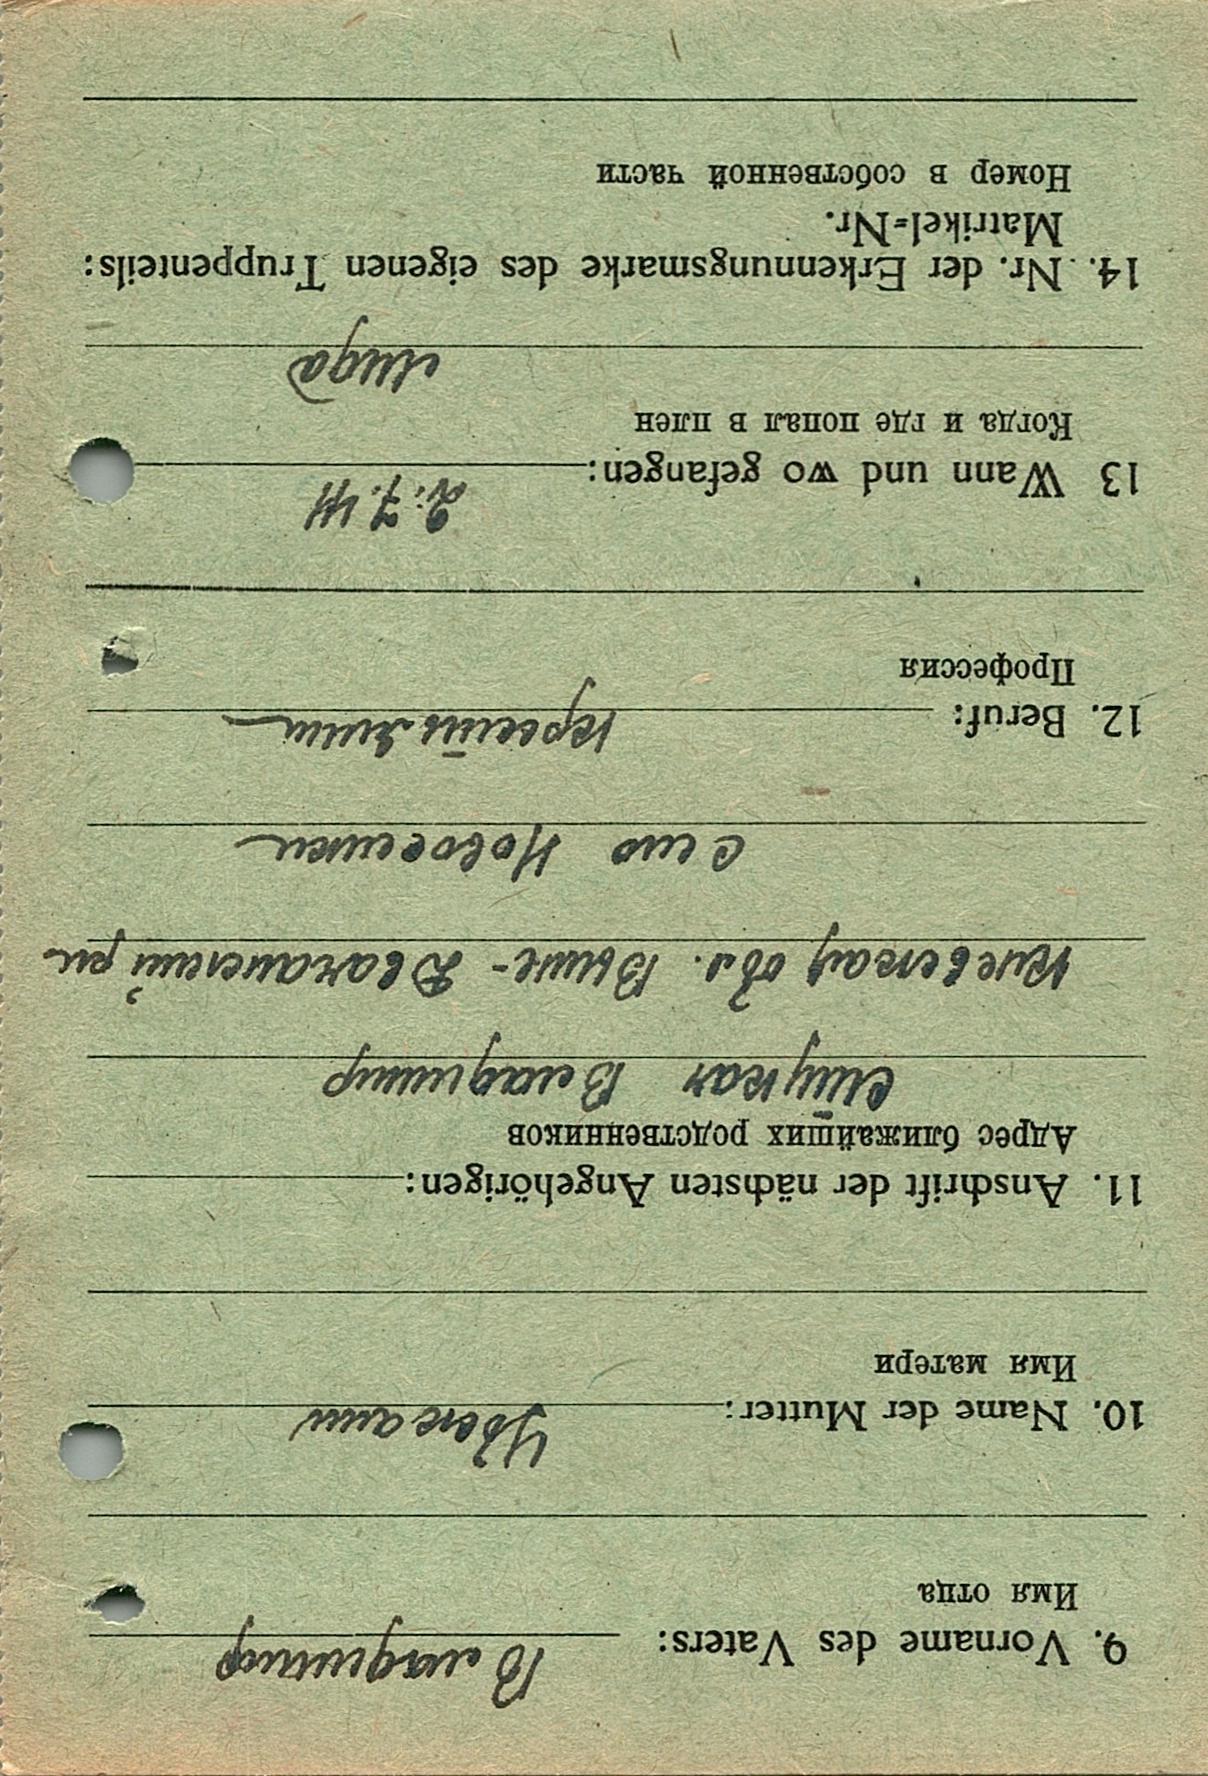 9. Vorname des Vaters: Владимир
Имя отца
10. Name der Mutter:
Имя матери
11. Anschrift der nächsten Angehörigen:
Адрес ближайших родственников
Владимир
обл.
село
12. Beruf:
Профессия
13 Wann und wo gefangen: 2.7.41
Когда и где попал в плен
Лида
14. Nr. der Erkennungsmarke des eigenen Truppenteils:
Matrikel=Nr.
Номер в собственной части